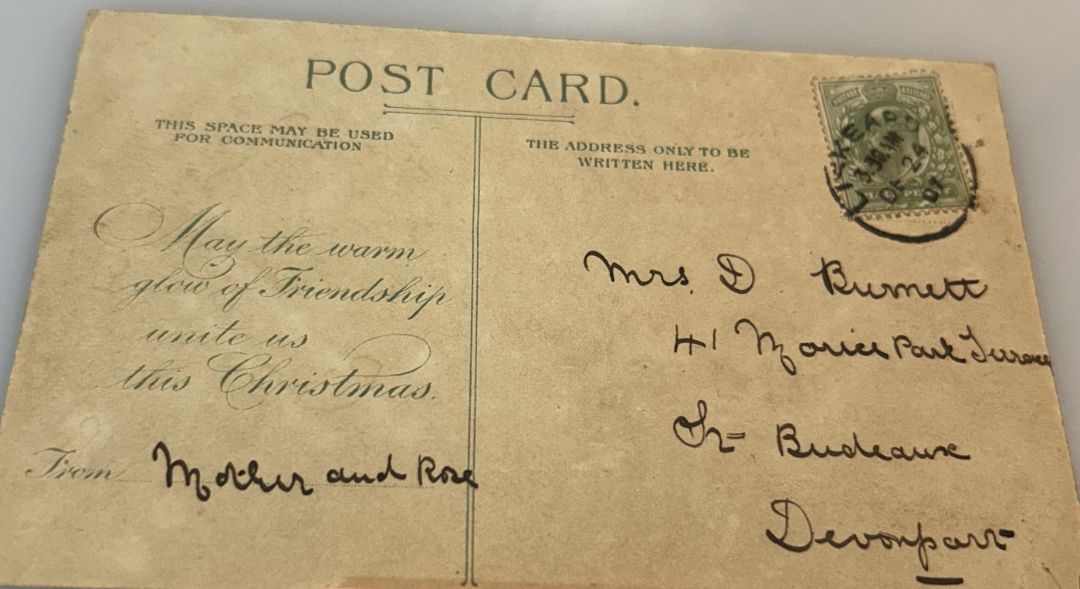 POST CARD.
THIS SPACE MAY BE USED
FOR COMMUNICATION
THE ADDRESS ONLY TO BE
WRITTEN HERE.
LISKEARD
DE 24
07
May the warm
glow of Friendship
unite us
this Christmas.
From Mother and Rose
Mrs. D Burnett
41 Morice Park Terrace
St Budeaux
Devonport